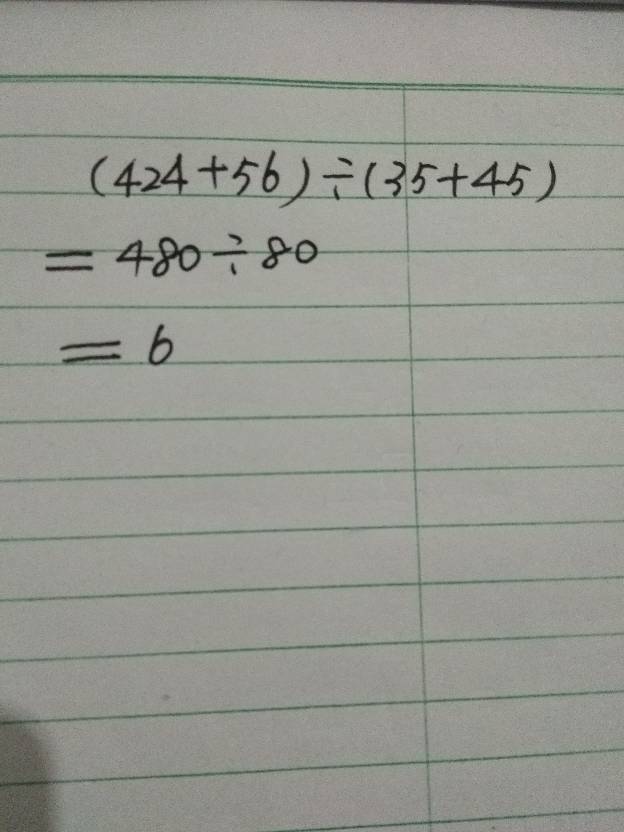 (424+56)÷(35+45)
=480÷80
=6